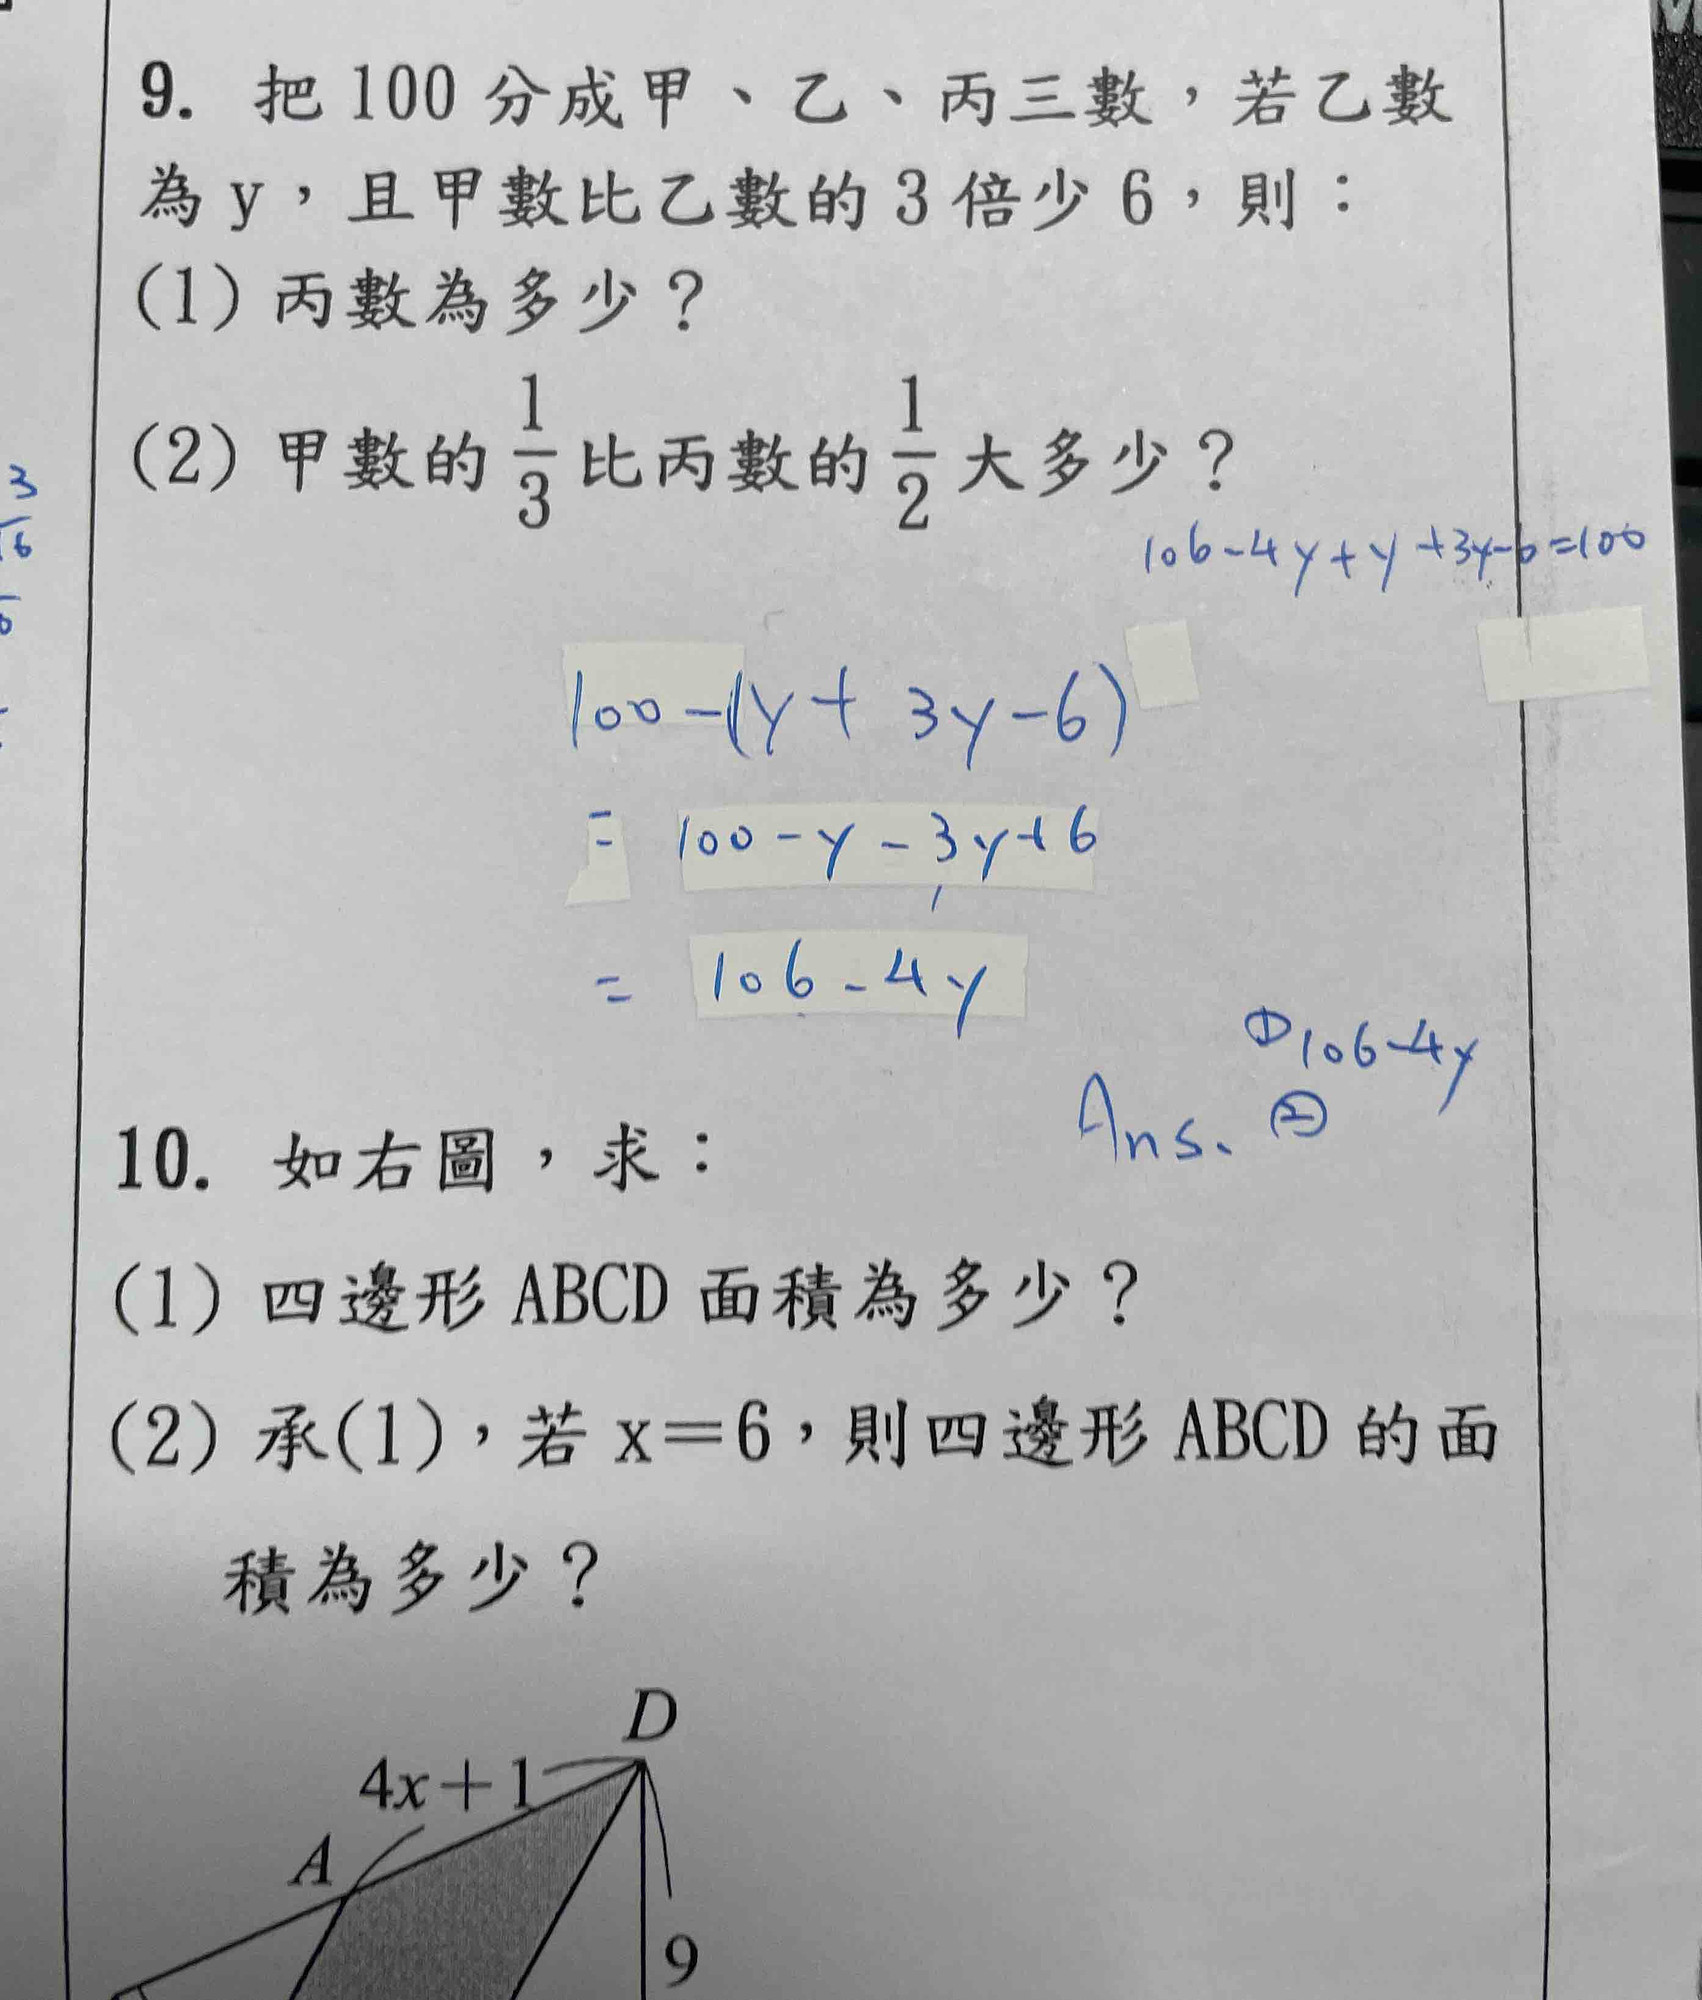 9. 把 100 分成甲、乙、丙三數，若乙數
為 y，且甲數比乙數的 3 倍少 6，則：
(1) 丙數為多少？
(2) 甲數的 1/3 比丙數的 1/2 大多少？
3
16
106-4y+y+3y-6=100
100-(y+3y-6)
= 100-y-3y+6
= 106-4y
① 106-4y
Ans. ②
10. 如右圖，求：
(1) 四邊形 ABCD 面積為多少？
(2) 承(1)，若 x=6，則四邊形 ABCD 的面
積為多少？
D
4x+1
A
9